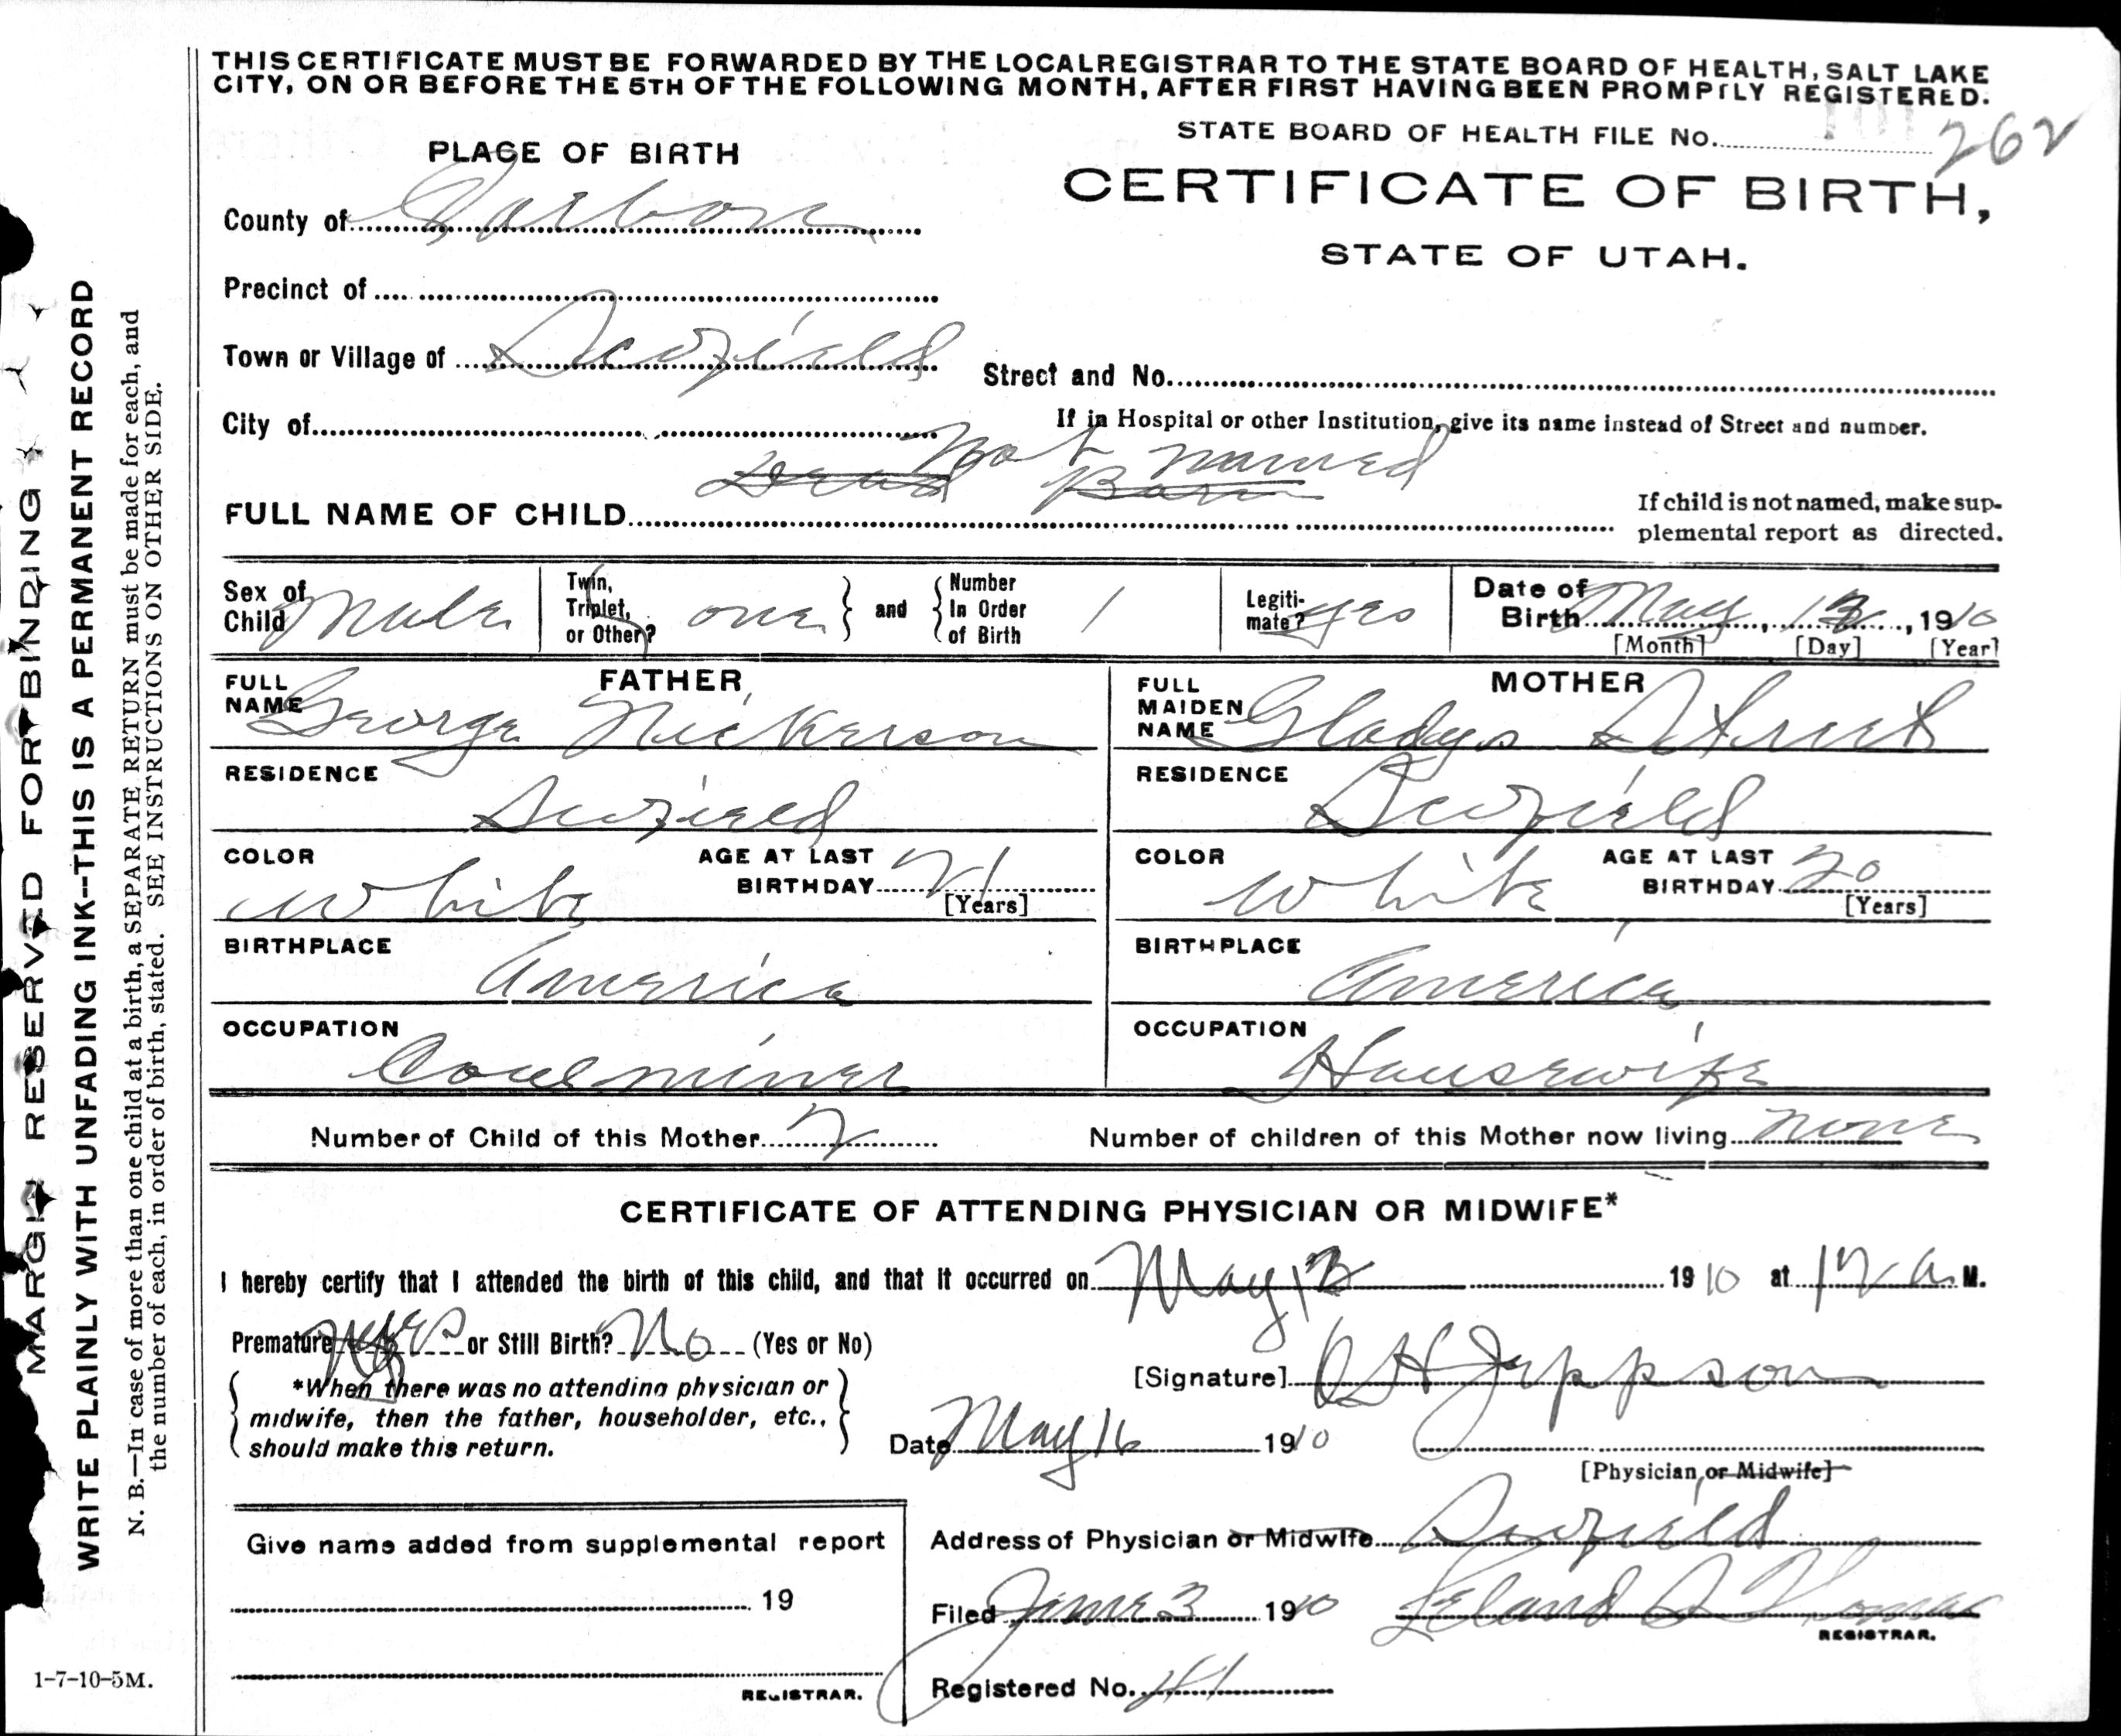 THIS CERTIFICATE MUST BE FORWARDED BY THE LOCAL REGISTRAR TO THE STATE BOARD OF HEALTH, SALT LAKE
CITY, ON OR BEFORE THE 5TH OF THE FOLLOWING MONTH, AFTER FIRST HAVING BEEN PROMPTLY REGISTERED.
STATE BOARD OF HEALTH FILE No. 101 262
PLACE OF BIRTH
CERTIFICATE OF BIRTH,
STATE OF UTAH.
County of Carbon
Precinct of
Town or Village of Scofield
Street and No.
City of
If in Hospital or other Institution, give its name instead of Street and number.
Not named
Dead Born
FULL NAME OF CHILD
If child is not named, make sup-
plemental report as directed.
Sex of Child Male
Twin, Triplet, or Other? one and Number In Order of Birth 1
Legiti-mate? yes
Date of Birth May, 13, 1910
[Month] [Day] [Year]
FATHER
FULL NAME George Nickerson
RESIDENCE
Scofield
COLOR White
AGE AT LAST BIRTHDAY 21
[Years]
BIRTHPLACE
America
OCCUPATION
Coal miner
MOTHER
FULL MAIDEN NAME Gladys Street
RESIDENCE
Scofield
COLOR White
AGE AT LAST BIRTHDAY 20
[Years]
BIRTHPLACE
America
OCCUPATION
Housewife
Number of Child of this Mother 2
Number of children of this Mother now living none
CERTIFICATE OF ATTENDING PHYSICIAN OR MIDWIFE*
I hereby certify that I attended the birth of this child, and that it occurred on May 13 1910 at 12 a.M.
Premature yes or Still Birth? No (Yes or No)
*When there was no attending physician or
midwife, then the father, householder, etc.,
should make this return.
[Signature] H Jeppson
Date May 16 1910
[Physician or Midwife]
Give name added from supplemental report
19
REGISTRAR.
Address of Physician or Midwife Scofield
Filed June 3 1910 Leland S Thomas
REGISTRAR.
Registered No. 41
1-7-10-5M.
MARGIN RESERVED FOR BINDING
WRITE PLAINLY WITH UNFADING INK--THIS IS A PERMANENT RECORD
N. B.—In case of more than one child at a birth, a SEPARATE RETURN must be made for each, and
the number of each, in order of birth, stated. SEE INSTRUCTIONS ON OTHER SIDE.